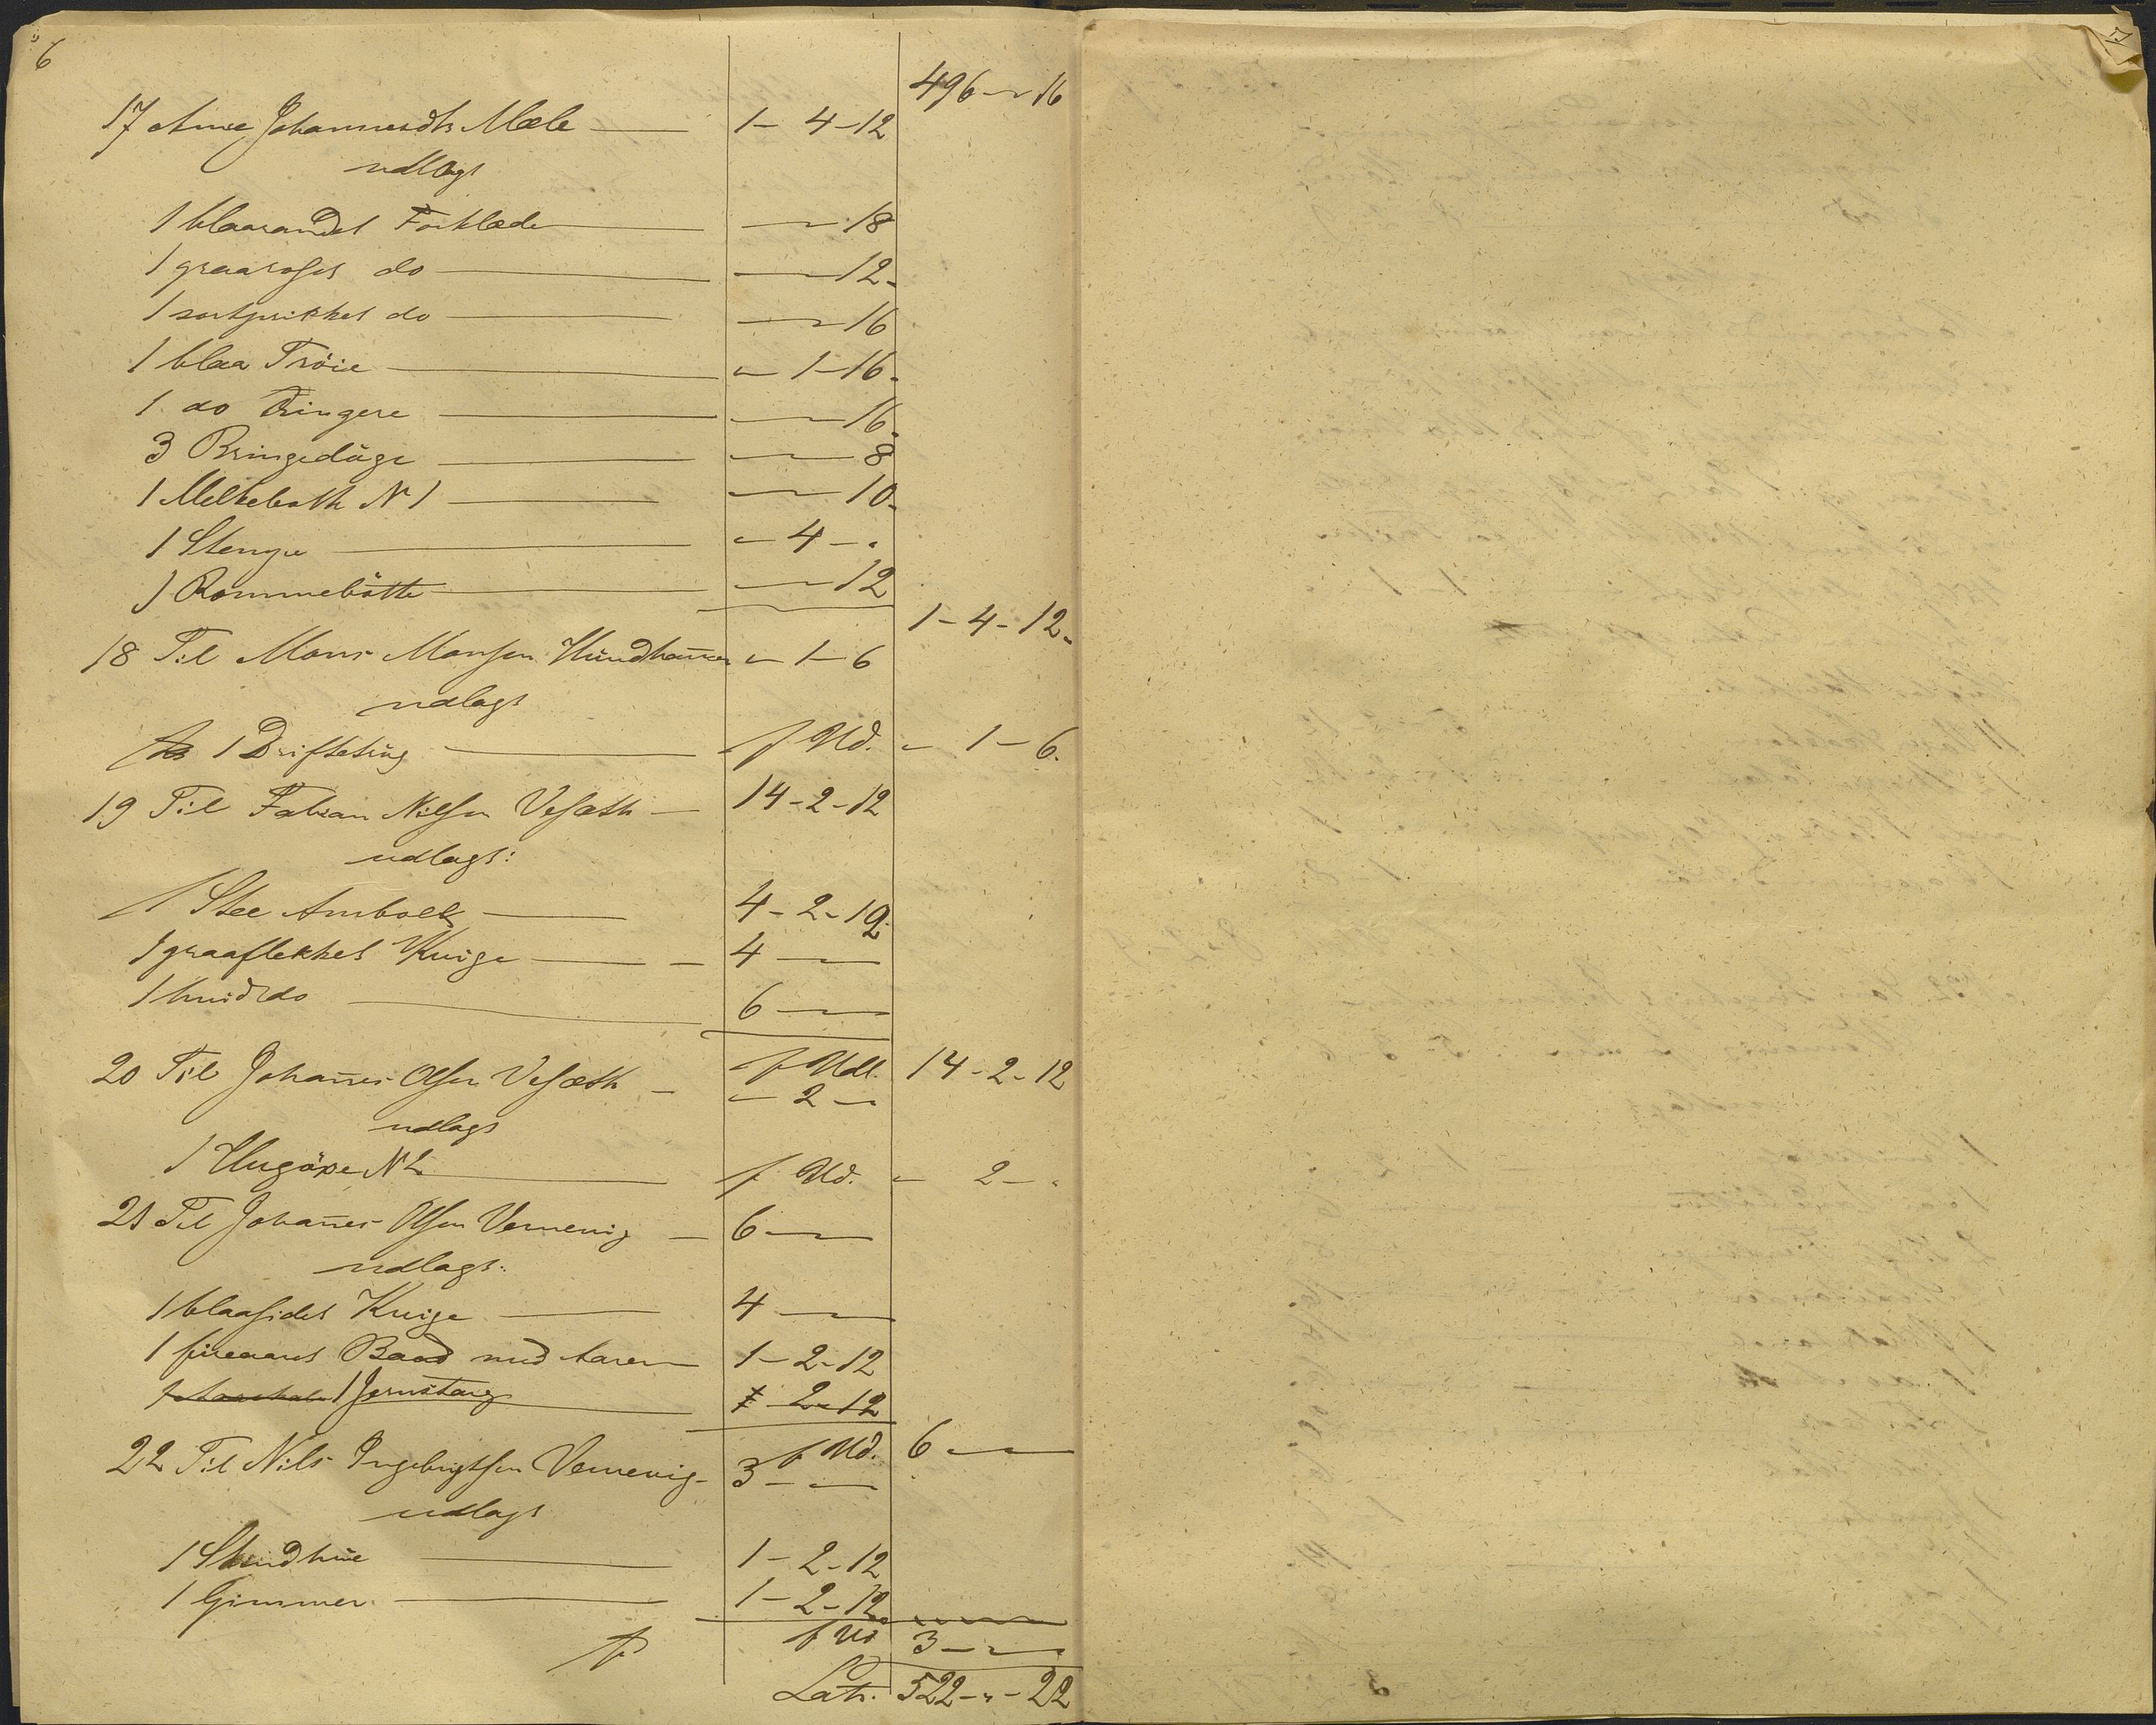 6
496 - " 16
17 Anne Johannesdtr Mæle — 1 - 4 - 12
udlagt
1 blaarandet Forklæde — " - 18
1 graaroset do — " - 12 -
1 sortprikket do — " 16
1 blaa Trøie — " 1 - 16 -
1 do Ringere — " - 16 -
3 Bringedüge — " - 8
1 Melkebøtte N 1 — " - 10 -
1 Stenge — " 4 - "
1 Rømmebøtte — " - 12
1 - 4 - 12 -
18 Til Mons Monsen Hundhamer " 1 - 6
udlagt
1 Driftetrüg — f Ud. " 1 - 6.
19 Til Fabian Nilsen Vesæth — 14 - 2 - 12
udlagt:
1 Stee Ambolt — 4 - 2 - 12
1 graaflekket Kvige — 4 - "
1 hvid do — 6 - "
f Udl. 14 - 2 - 12
20 Til Johañes Olsen Vesæth — " 2 - "
udlagt
1 Hugøxe N 2 — f Ud. " 2 - "
21 Til Johañes Olsen Vernevig — 6 - "
udlagt:
1 blaasidet Kvige — 4 - "
1 fireaars Baad med Aarer — 1 - 2 - 12
1 Jernstang — " 2 - 12
f Ud. 6 - "
22 Til Nils Ingebrigtsen Vernevig - 3 - "
udlagt
1 Skindhüe — 1 - 2 - 12
1 Gimmer — 1 - 2 - 12
f Ud 3 - "
Latr. 522 - " - 22